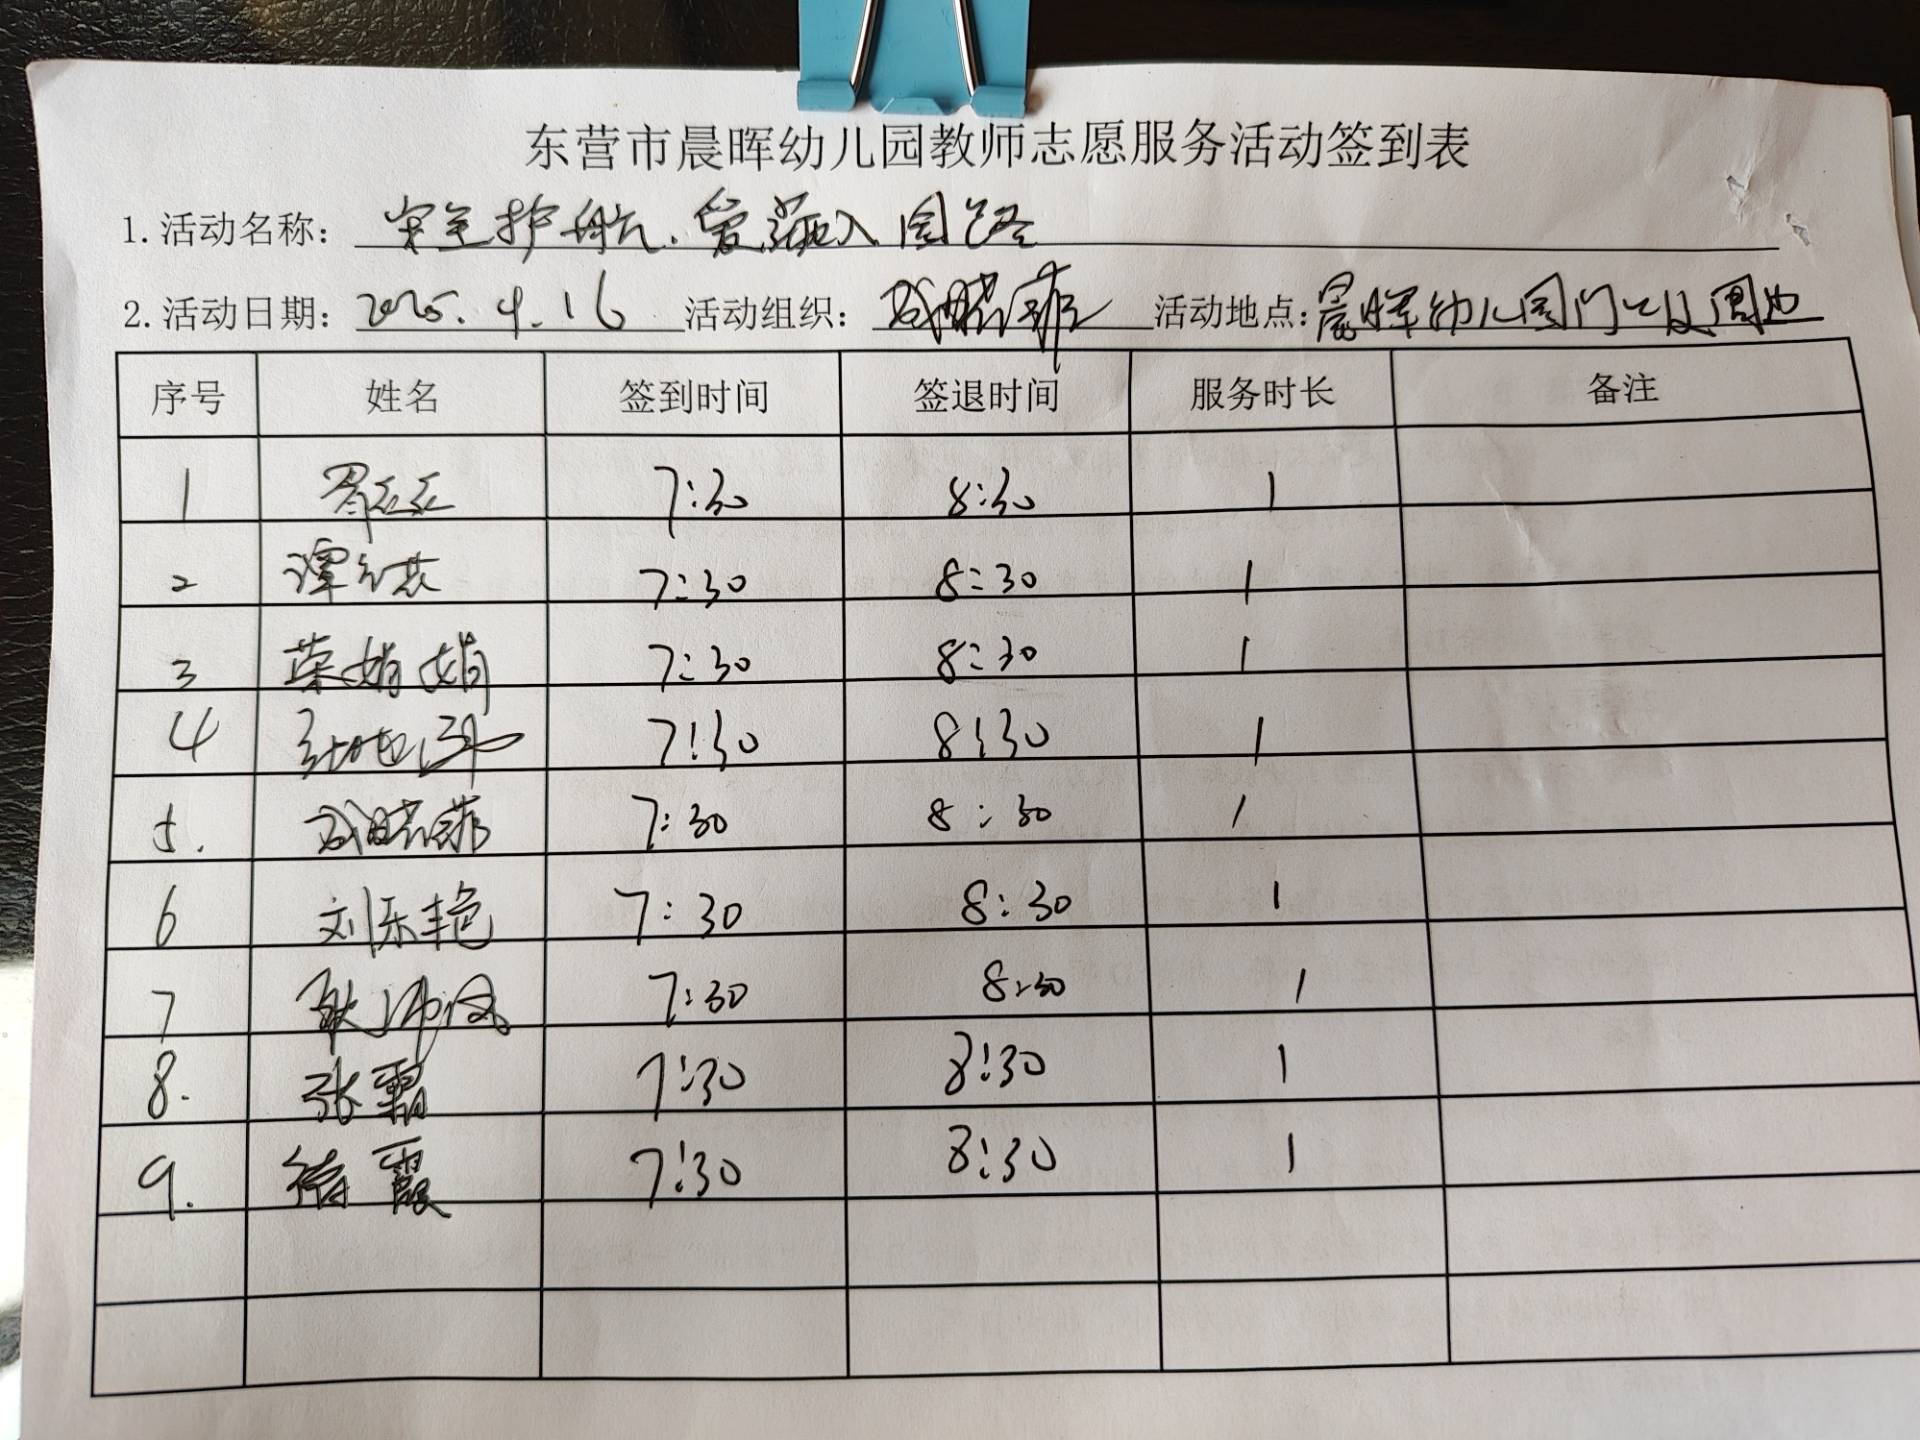 东营市晨晖幼儿园教师志愿服务活动签到表
1.活动名称：安全护航.爱满入园路
2.活动日期：2025.4.16 活动组织： 活动地点：晨晖幼儿园门口及周边
序号 姓名 签到时间 签退时间 服务时长 备注
1 7:30 8:30 1
2 7:30 8:30 1
3 荣娟娟 7:30 8:30 1
4 7:30 8:30 1
5. 7:30 8:30 1
6 刘乐艳 7:30 8:30 1
7 7:30 8:30 1
8. 张霜 7:30 8:30 1
9. 徐霞 7:30 8:30 1